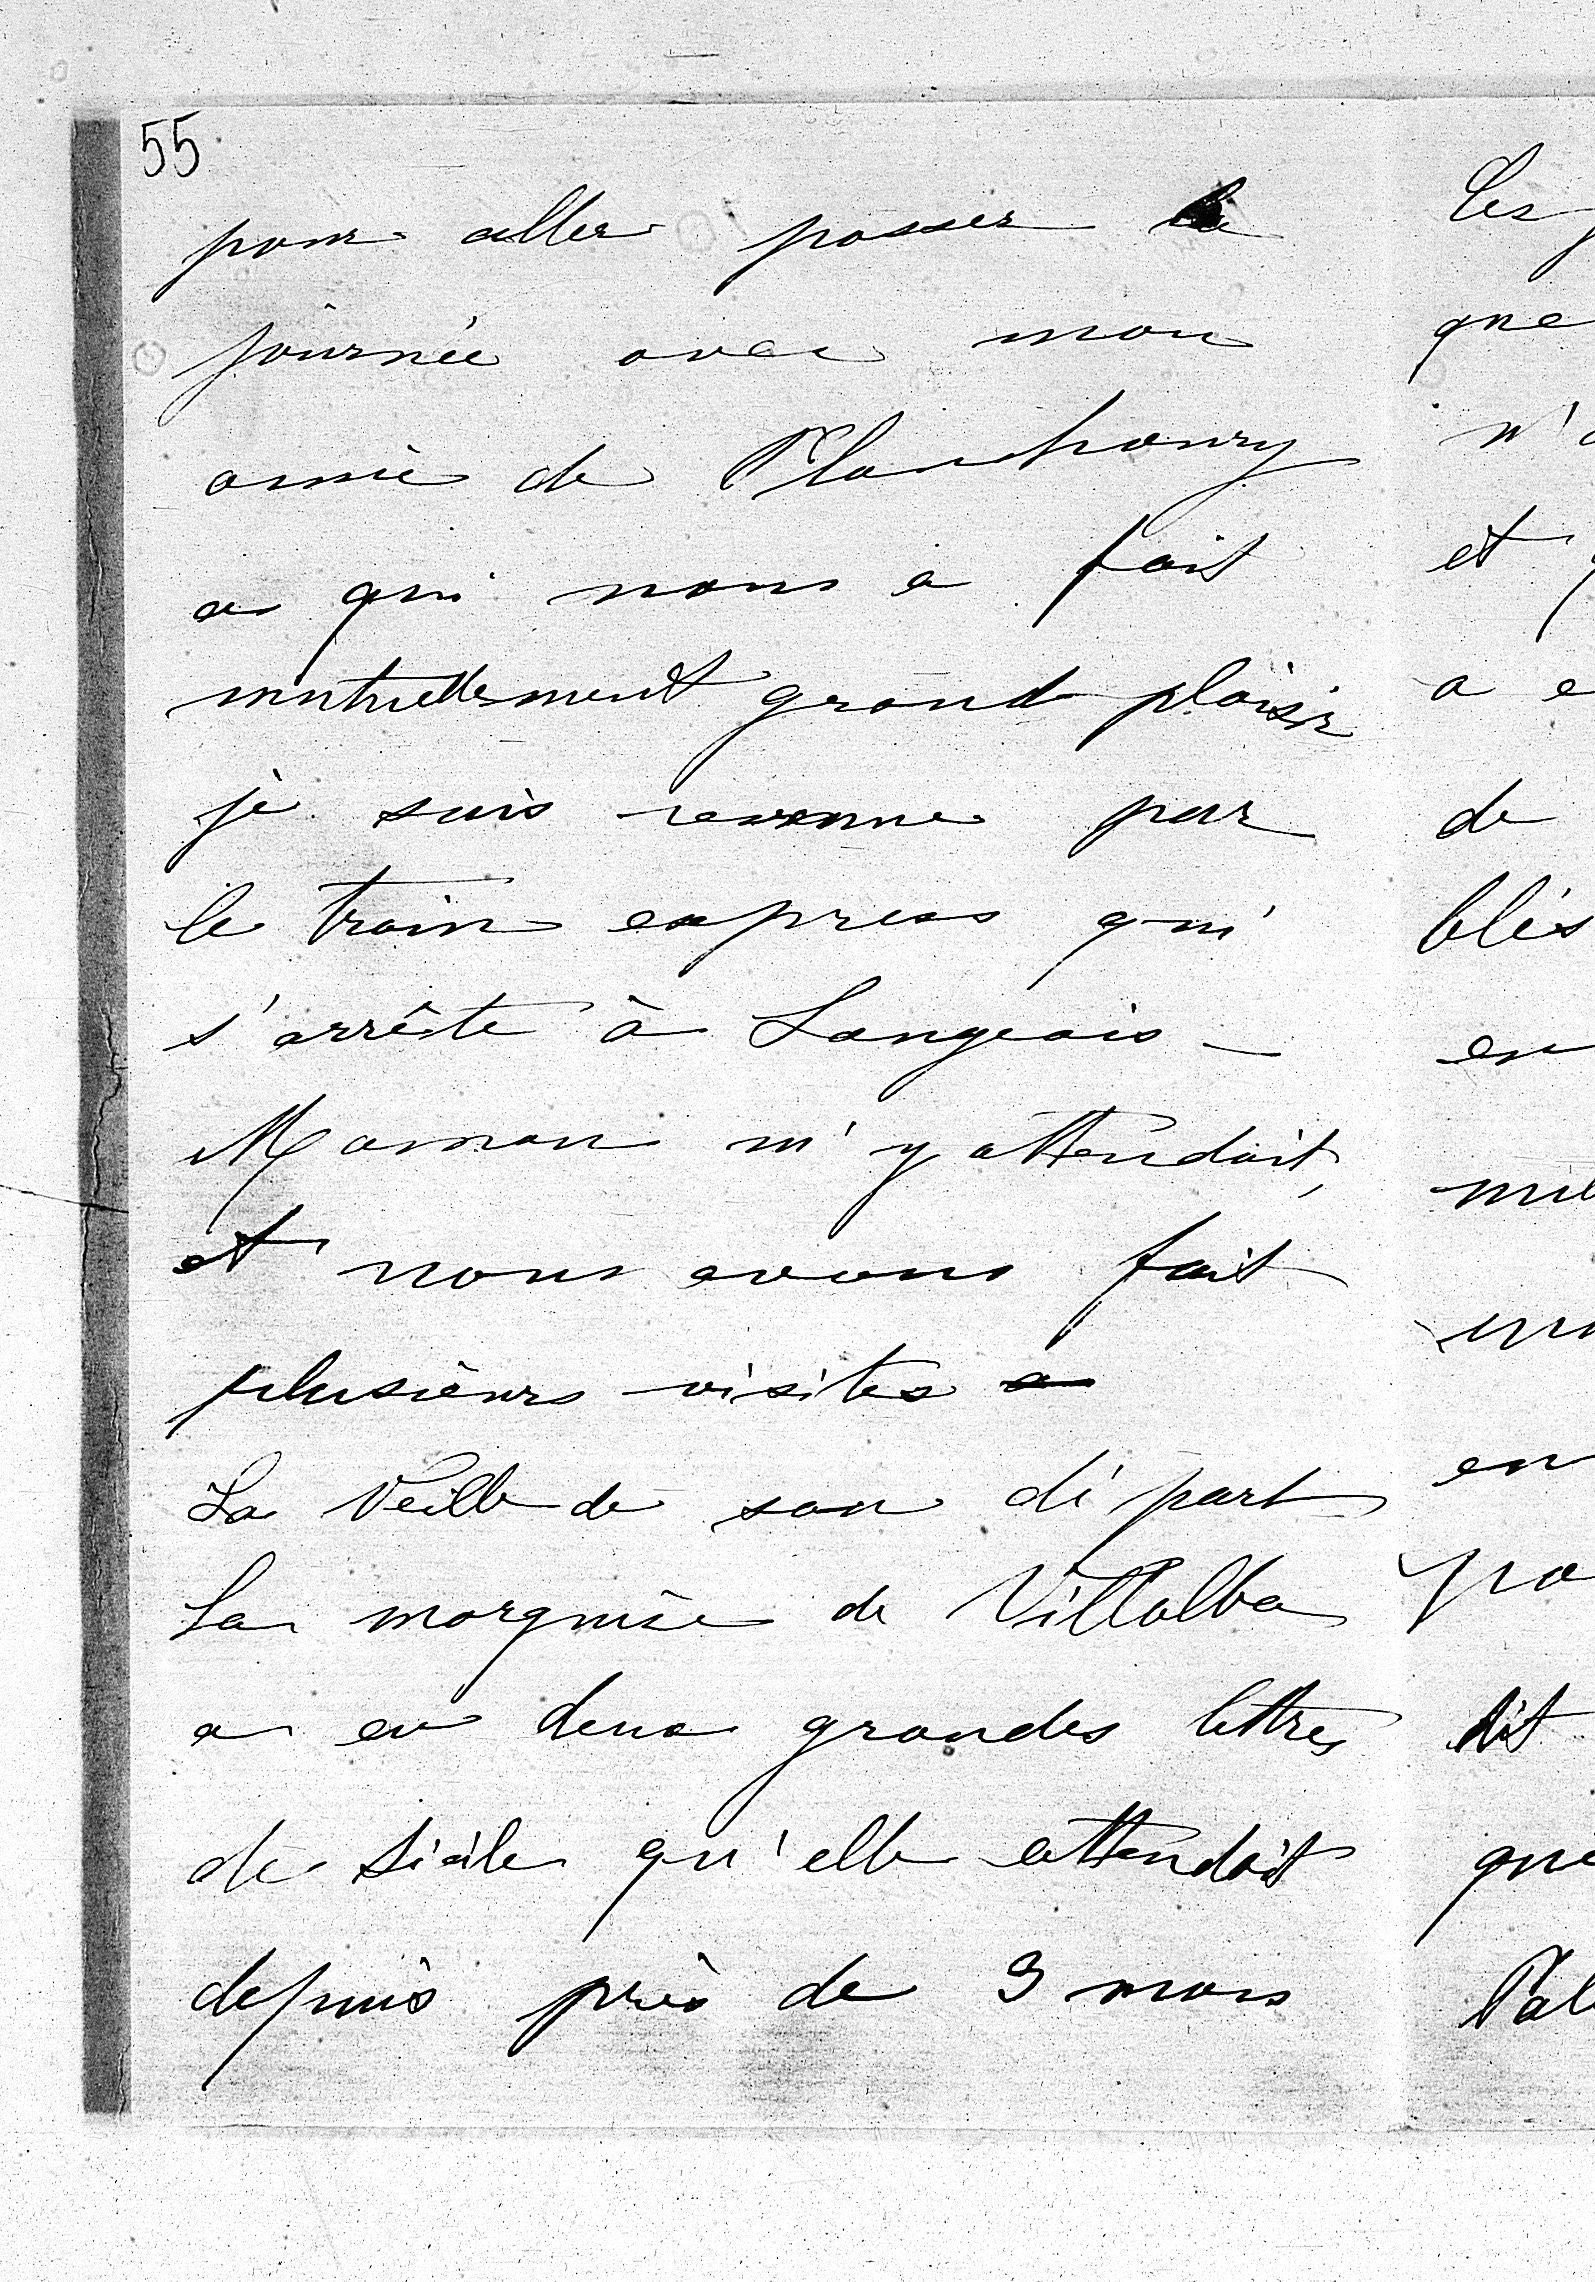 55
pour aller passer la
journée avec mon
amie de Planchoury
ce qui nous a fait
mutuellement grand plaisir
je suis revenue par
le train express qui
s'arrête à Langeais -
Maman m'y attendait,
et nous avons fait
plusieurs visites
La Veille de son départ
La marquise de Villalba
a eu deux grandes lettres
de Sicile qu'elle attendait
depuis près de 3 mois
Les
que
n'a
et
a e
de
blés
en
mil
en
pa
dit
que
Pal